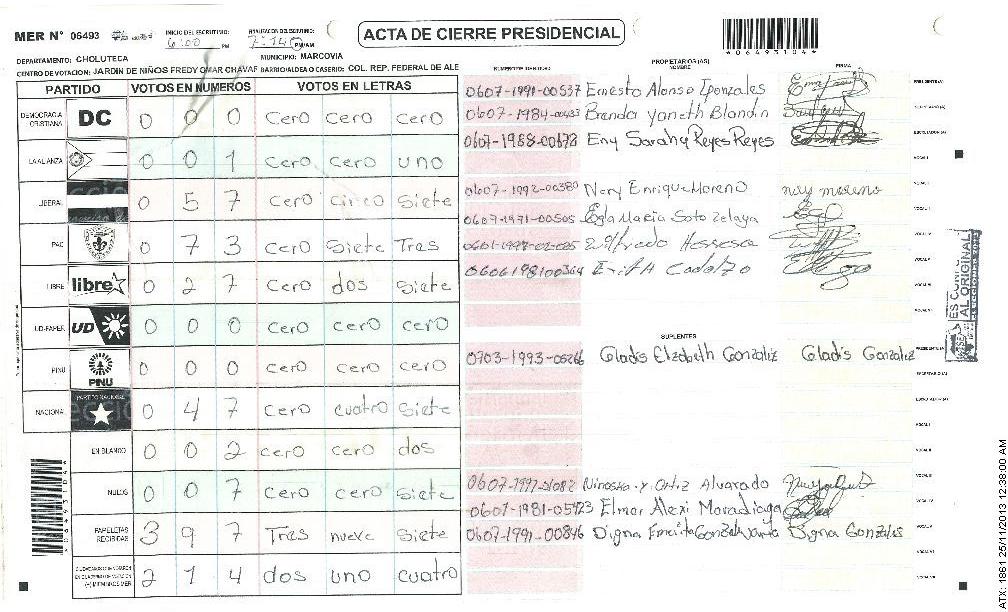 MER N° 06493 INICIO DEL ESCRUTINIO: 6:00 PM FINALIZACION DEL ESCRUTINIO: PM/AM
ACTA DE CIERRE PRESIDENCIAL
*06493104*
DEPARTAMENTO: CHOLUTECA MUNICIPIO: MARCOVIA
CENTRO DE VOTACION: JARDIN DE NIÑOS FREDY OMAR CHAVAR BARRIO/ALDEA O CASERIO: COL. REP. FEDERAL DE ALE
PARTIDO VOTOS EN NUMEROS VOTOS EN LETRAS
DEMOCRACIA CRISTIANA DC 0 0 0 cero cero cero
LA ALIANZA 0 0 1 cero cero uno
LIBERAL 0 5 7 cero cinco siete
PAC 0 7 3 cero siete Tres
LIBRE libre 0 2 7 cero dos siete
UD-FAPER UD 0 0 0 cero cero cero
PINU PINU 0 0 0 cero cero cero
NACIONAL PARTIDO NACIONAL 0 4 7 cero cuatro siete
EN BLANCO 0 0 2 cero cero dos
NULOS 0 0 7 cero cero siete
PAPELETAS RECIBIDAS 3 9 7 Tres nueve siete
2 1 4 dos uno cuatro
*06493104*
NUMERO DE IDENTIDAD PROPIETARIOS (AS) NOMBRE FIRMA
0607-1991-00537 Ernesto Alonso Gonzales PRESIDENTE(A)
0607-1984-00433 Brenda Yaneth Blandin SECRETARIO(A)
0607-1988-00678 Eny Sarahy Reyes Reyes ESCRUTADOR(A)
VOCAL I
0607-1992-00380 Nery Enrique Moreno nery moreno VOCAL II
0607-1971-00505 Egla Maria Soto Zelaya
Wilfredo
0606198100364
SUPLENTES
0703-1993-05266 Gladis Elizabeth Gonzalez Gladis Gonzalez PRESIDENTE(A)
SECRETARIO(A)
ESCRUTADOR(A)
Ortiz Alvarado
0607-1981-05423 Elmer Alexi Moradiaga
0607-1991-00846 Digna Digna Gonzales
ES CONFORME AL ORIGINAL
ATX: 1861 25/11/2013 12:38:00 AM